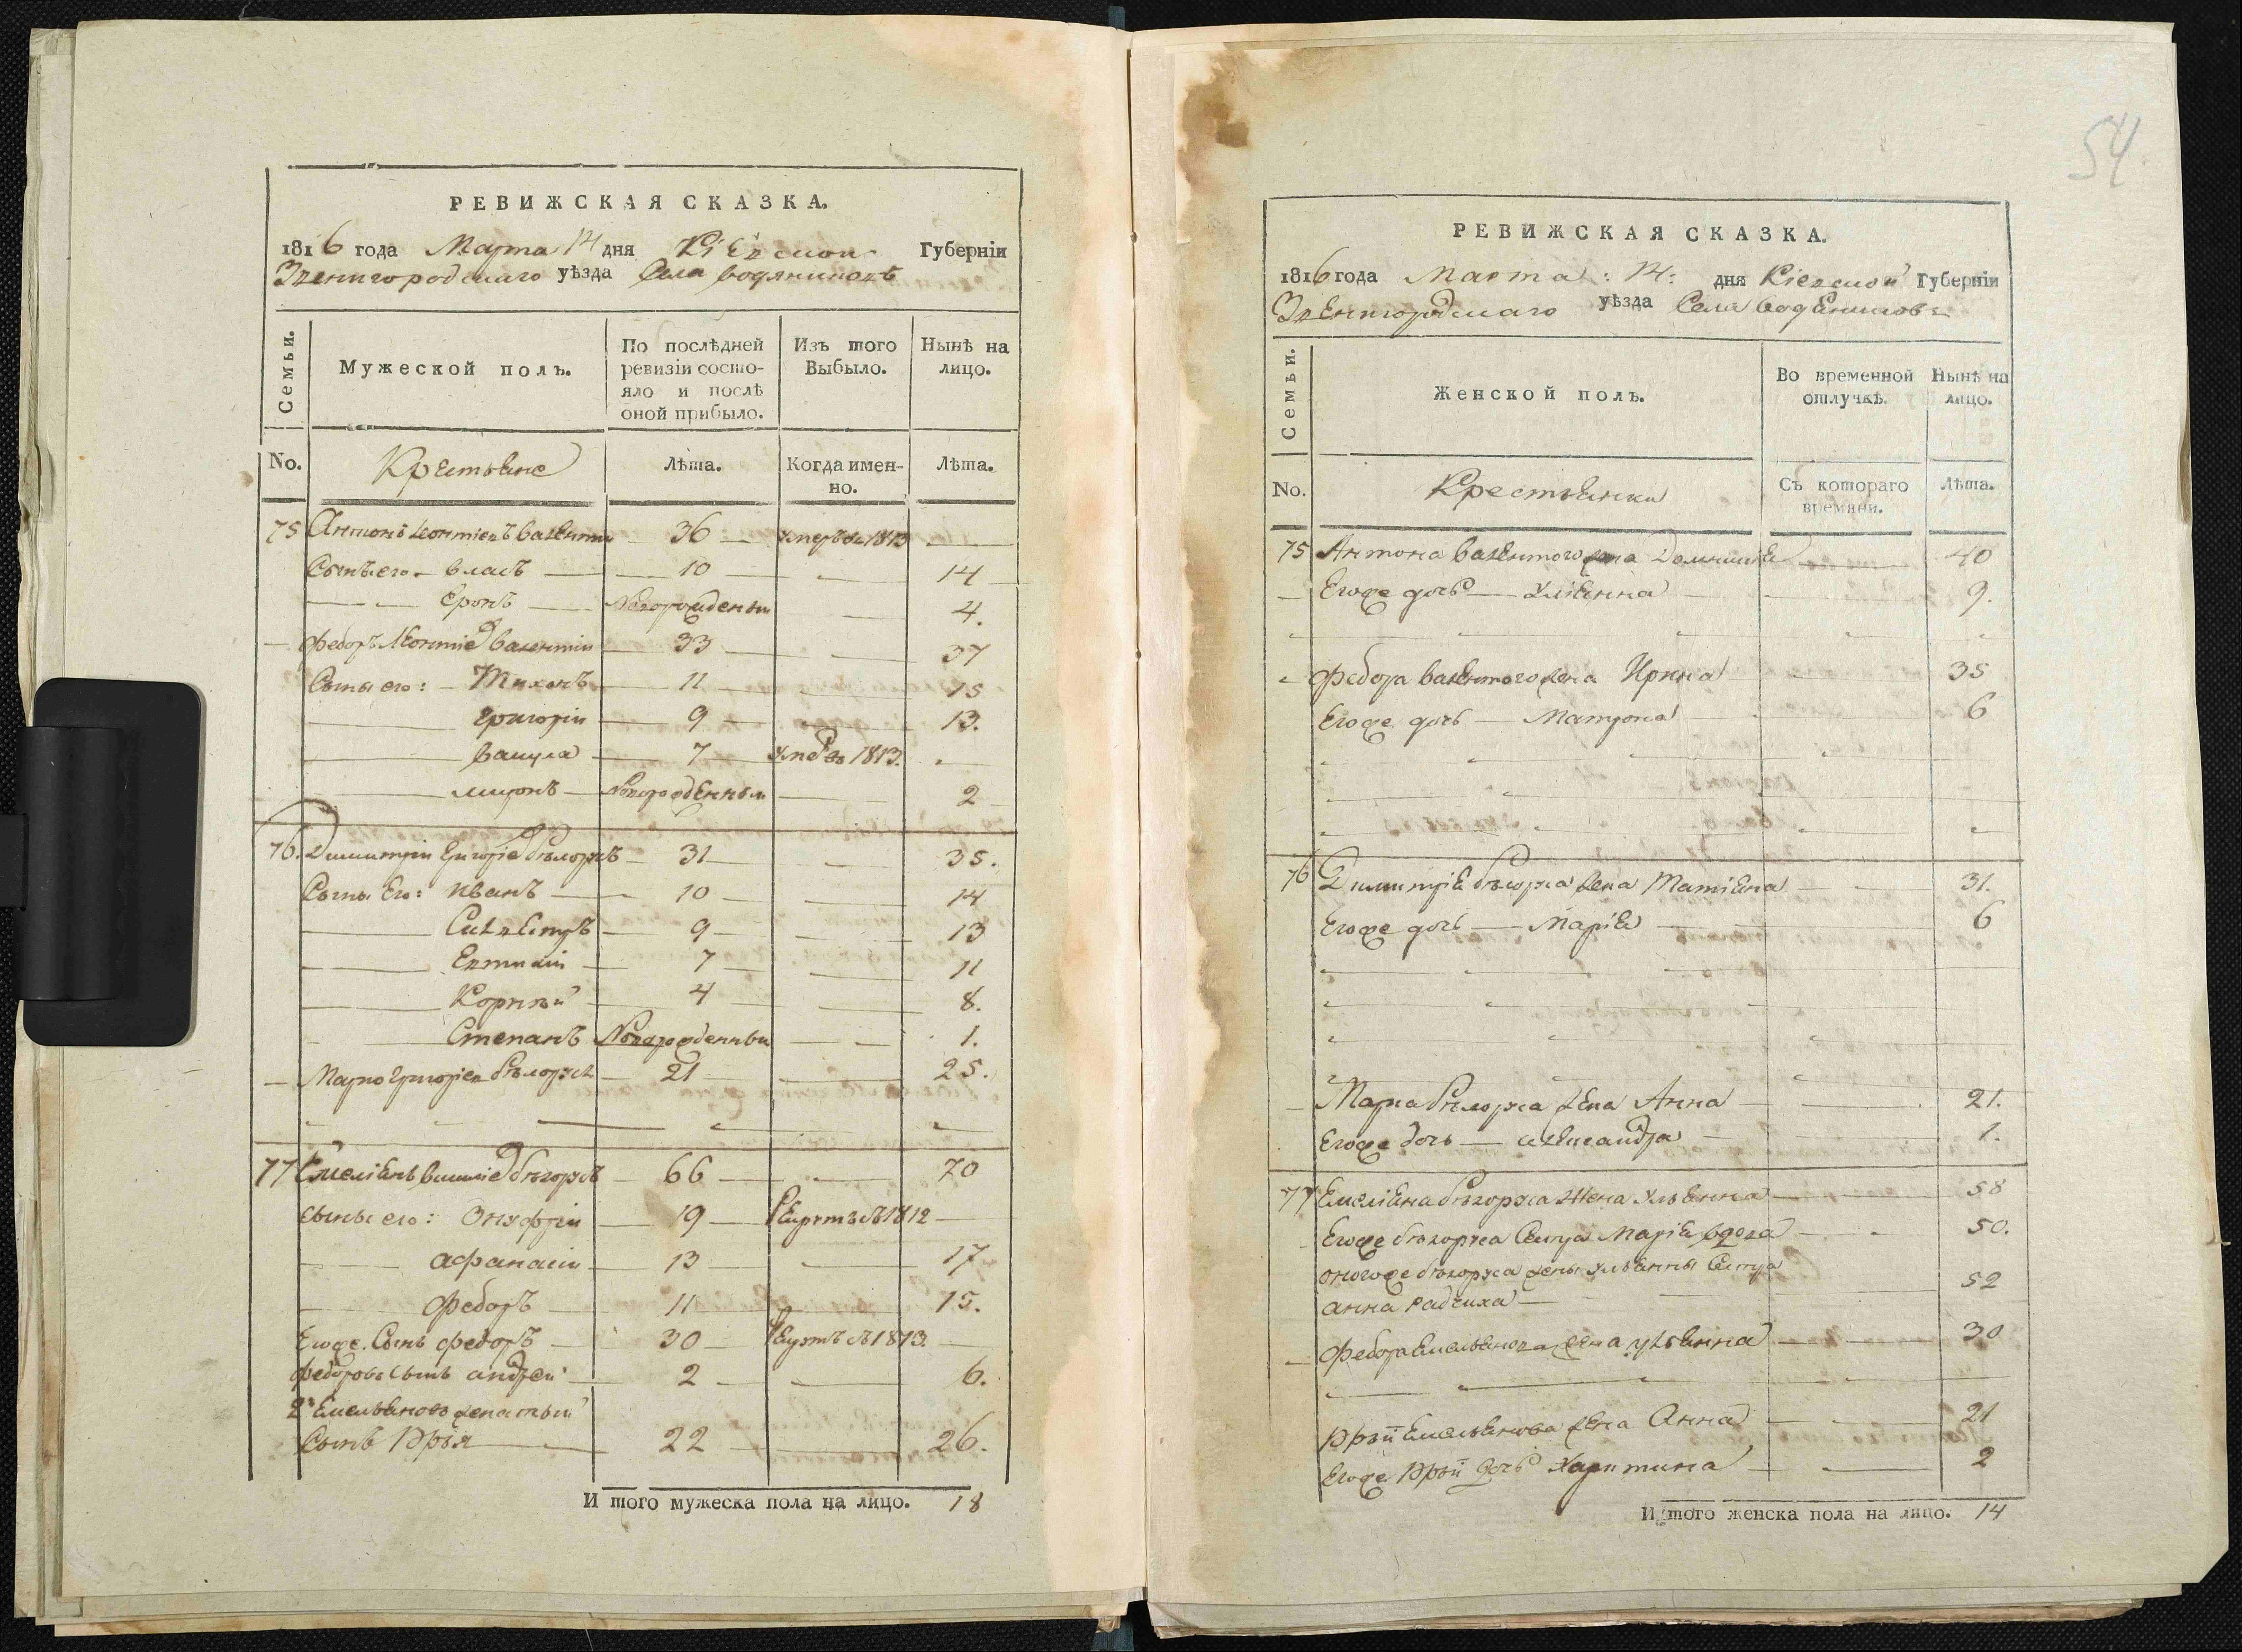 РЕВИЖСКАЯ СКАЗКА.
1816 года Марта 14 дня Кіевской Губерніи
Звенигородскаго уѣзда Села водяниковъ
Семьи. Мужеской полъ. По послѣдней ревизіи состояло и послѣ оной прибыло. Изъ того Выбыло. Нынѣ на лицо.
No. Крестьяне Лѣта. Когда именно. Лѣта.
75 Антонъ Леонтіевъ 36 умеръ въ 1813
Сынъ его власъ 10 14
Новорожденный 4.
Федоръ Леонтіев 33 37
Сыны его: Тихонъ 11 15
Григорій 9 13.
вакула 7 умер въ 1813.
миронъ Новорожденный 2
76. Димитрій Григоріев Бѣлоржъ 31 35.
Сыны Его: иванъ 10 14
Силвестръ 9 13
Евтихій 7 11
Корнѣй 4 8.
Степанъ Новорожденный 1.
Марко Григоріев 21 25.
77 Емеліянъ 66 70
сыны его: Онуфрій 19 Рекрутъ въ 1812
афанасій 13 17
федоръ 11 15.
Егоже Сынъ федоръ 30 Рекрутъ въ 1813.
федоровъ Сынъ андрей 2 6.
2й Емельяновъ женатый
Сынъ Юрья 22 26.
И того мужеска пола на лицо. 18
54.
РЕВИЖСКАЯ СКАЗКА.
1816 года Марта: 14: дня Кіевской Губерніи
Звенигородскаго уѣзда Села водяниковъ
Семьи. Женской полъ. Во временной отлучкѣ. Нынѣ на лицо.
No. Крестьянки Съ котораго времяни. Лѣта.
75 Антона жена 40
Егоже дочь Улияна 9.
Федора жена Ирина 35
Егоже дочь Матрона 6
76 Димитрія жена Татіяна 31.
Егоже дочь Марія 6
Марка жена Анна 21.
Егоже дочь александра 1.
77 Емеліяна жена Ульянна 58
Егоже Сестра Марія вдова 50.
оногоже жены ульянны Сестра
анна 52
Федора Емельянова жена ульянна 30
Юрѣй Емельянова жена Анна 21
Егоже Юрѣй дочь Харитина 2
И того женска пола на лицо. 14